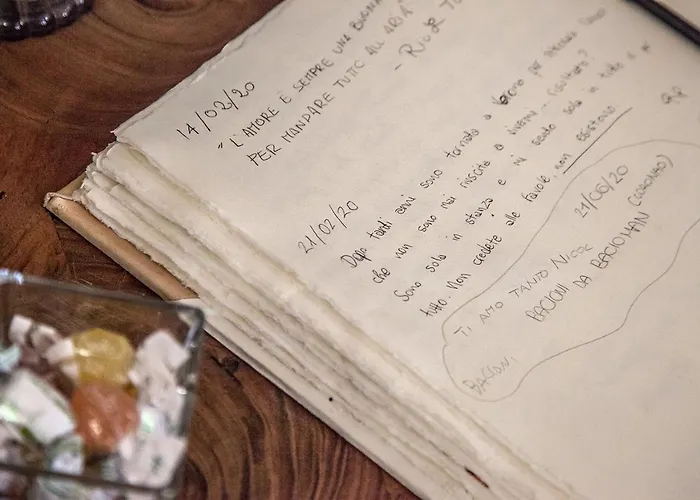 14/02/20
"L'AMORE È SEMPRE UNA BUONA
PER MANDARE TUTTO ALL'ARIA"
21/02/20
Dopo tanti anni sono tornata a per
che non sono mai riuscita a
Sono sola in stanza e mi sento sola in tutto e
tutto. Non credete alle favole, non esistono
21/06/20
TI AMO TANTO NICOL
BACIONI DA BACIOTMAN (CORONATO)
BACIONI